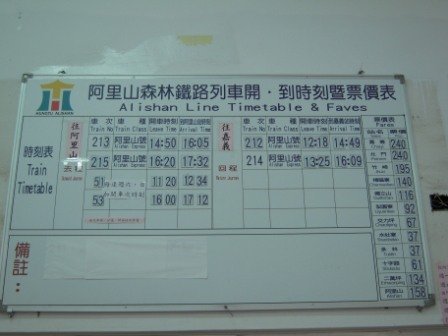 阿里山森林鐵路列車開．到時刻暨票價表
Alishan Line Timetable & Faves
時刻表
Train
Timetable
往阿里山
去程
車次 車種 開車時刻
Train No Train Class Leave Time Arrival Time
213 阿里山號 14:50 16:05
215 阿里山號 16:20 17:32
51 11 20 12 34
53 16 00 17 12
往嘉義
回程
車次 車種 開車時刻
Train No Train Class Leave Time Arrival Time
212 阿里山號 12:18 14:49
214 阿里山號 13:25 16:09
票價表
Fares
站名 票價
240
240
竹崎 195
140
獨立山 116
92
交力坪 67
水社寮 37
37
十字路 61
二萬坪 134
阿里山 158
備註：